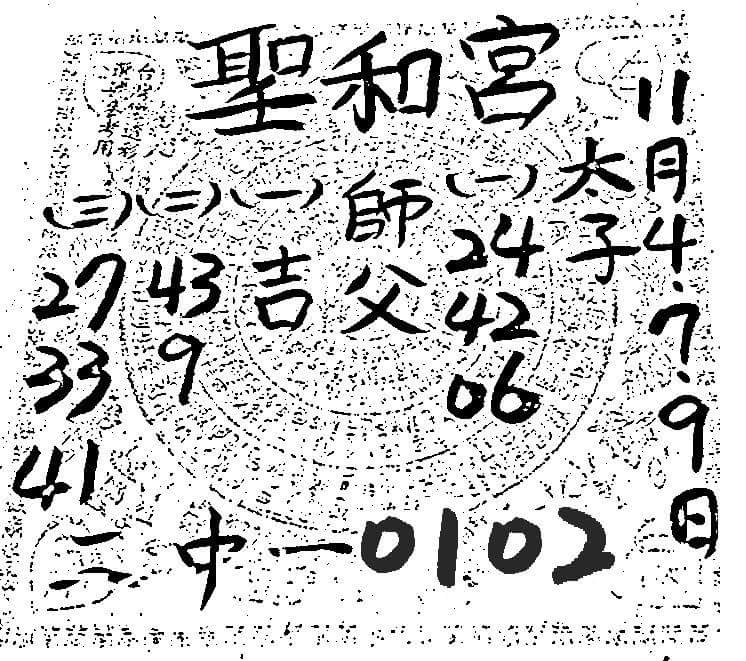 聖和宮
11月4.7.9日
太子
(一)
24
42
06
師父
(一)
吉
(二)
43
9
(三)
27
33
41
二中一0102